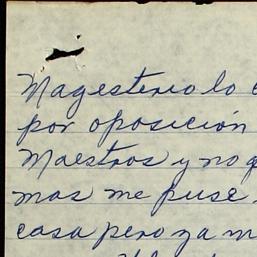 Magesterio lo
por oposición
Maestros y no
mas me puse
casa pero za m